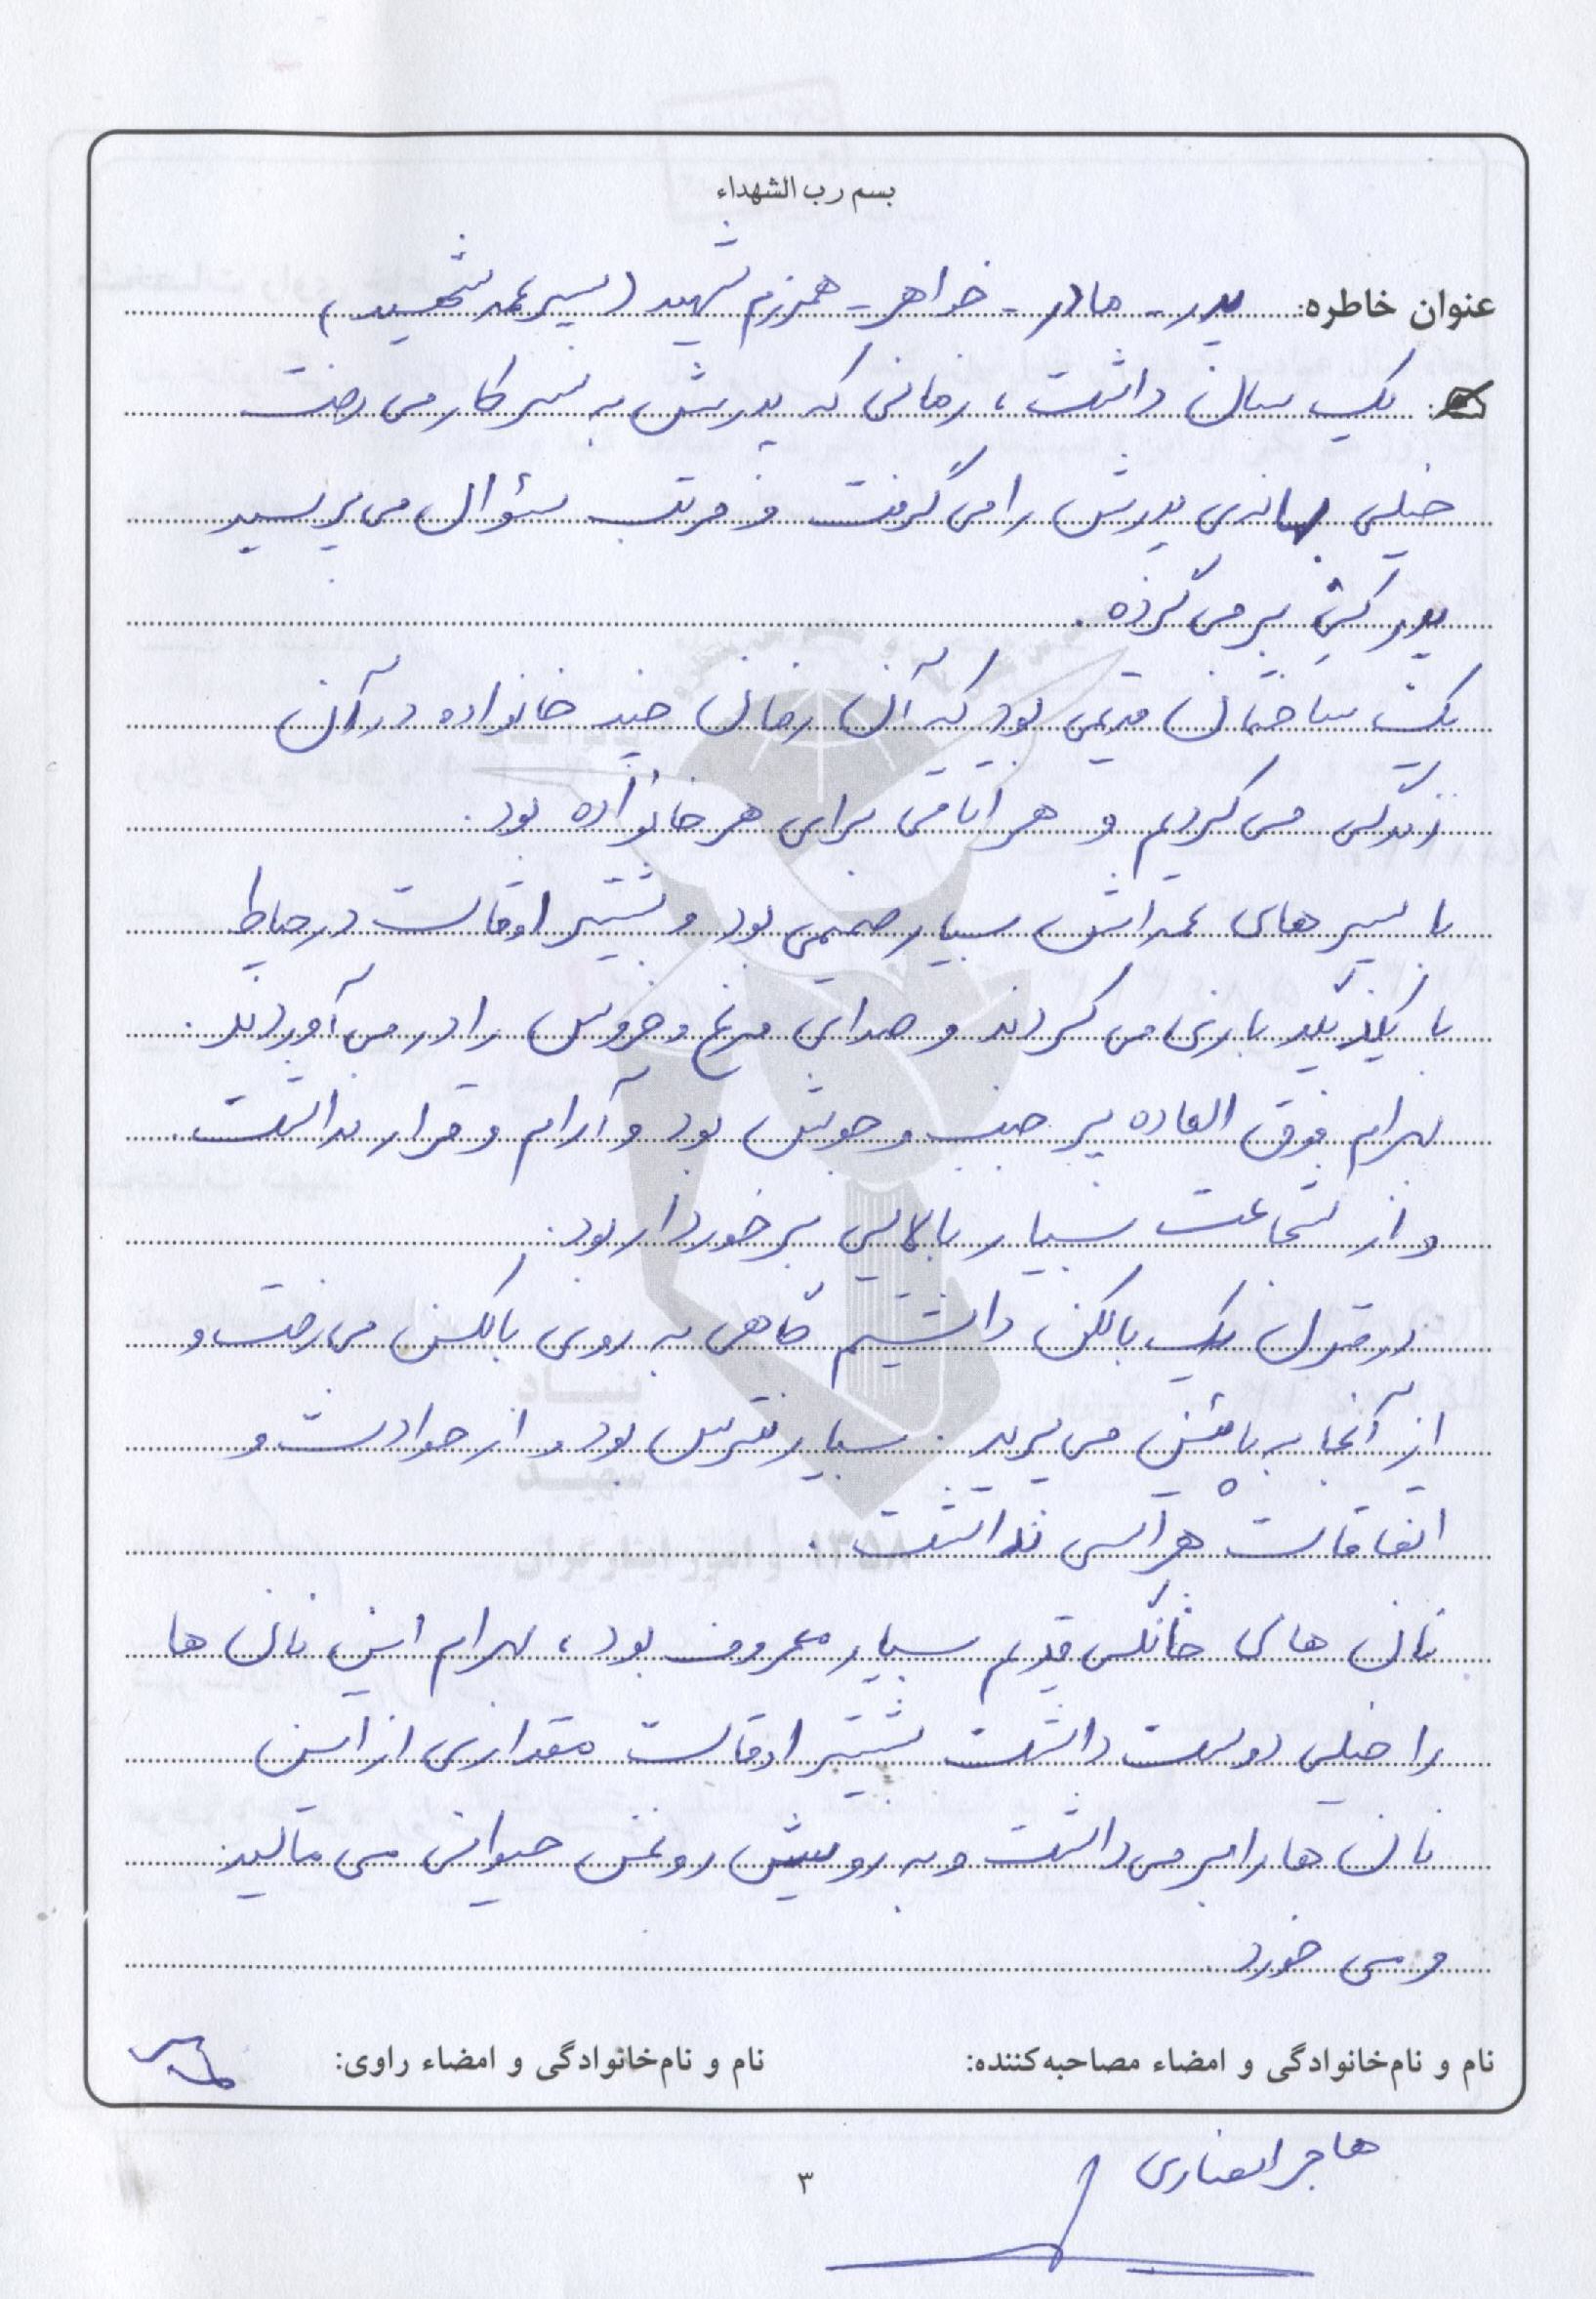 بسم رب الشهداء
عنوان خاطره: پدر - مادر - خواهر - همرزم شهید (پسر عمه شهید)
یک سال داشت، زمانی که پدرش به سر کار می رفت
خیلی بهانه ی پدرش را می گرفت و مرتب سؤال می پرسید
پدر کی بر می گرده.
یک ساختمان قدیمی بود که آن زمان چند خانواده در آن
زندگی می کردیم و هر اتاقی برای هر خانواده بود.
با پسرهای عمه اش بسیار صمیمی بود و بیشتر اوقات در حیاط
با یکدیگر بازی می کردند و صدای مرغ و خروس را در می آوردند.
بهرام فوق العاده پر جنب و جوش بود و آرام و قرار نداشت.
و از شجاعت بسیار بالایی برخوردار بود.
در منزل یک بالکن داشتیم گاهی به روی بالکن می رفت و
از آنجا به پائین می پرید. بسیار نترس بود و از حوادث و
اتفاقات هراسی نداشت.
نان های خانگی قدیم بسیار معروف بود، بهرام این نان ها
را خیلی دوست داشت بیشتر اوقات مقداری از این
نان ها را بر می داشت و به رویش روغن حیوانی می مالید
و می خورد
نام و نام‌خانوادگی و امضاء مصاحبه‌کننده: نام و نام‌خانوادگی و امضاء راوی:
هاجر انصاری
۳
بنیاد
شهید
و امور ایثارگران
۱۳۵۸